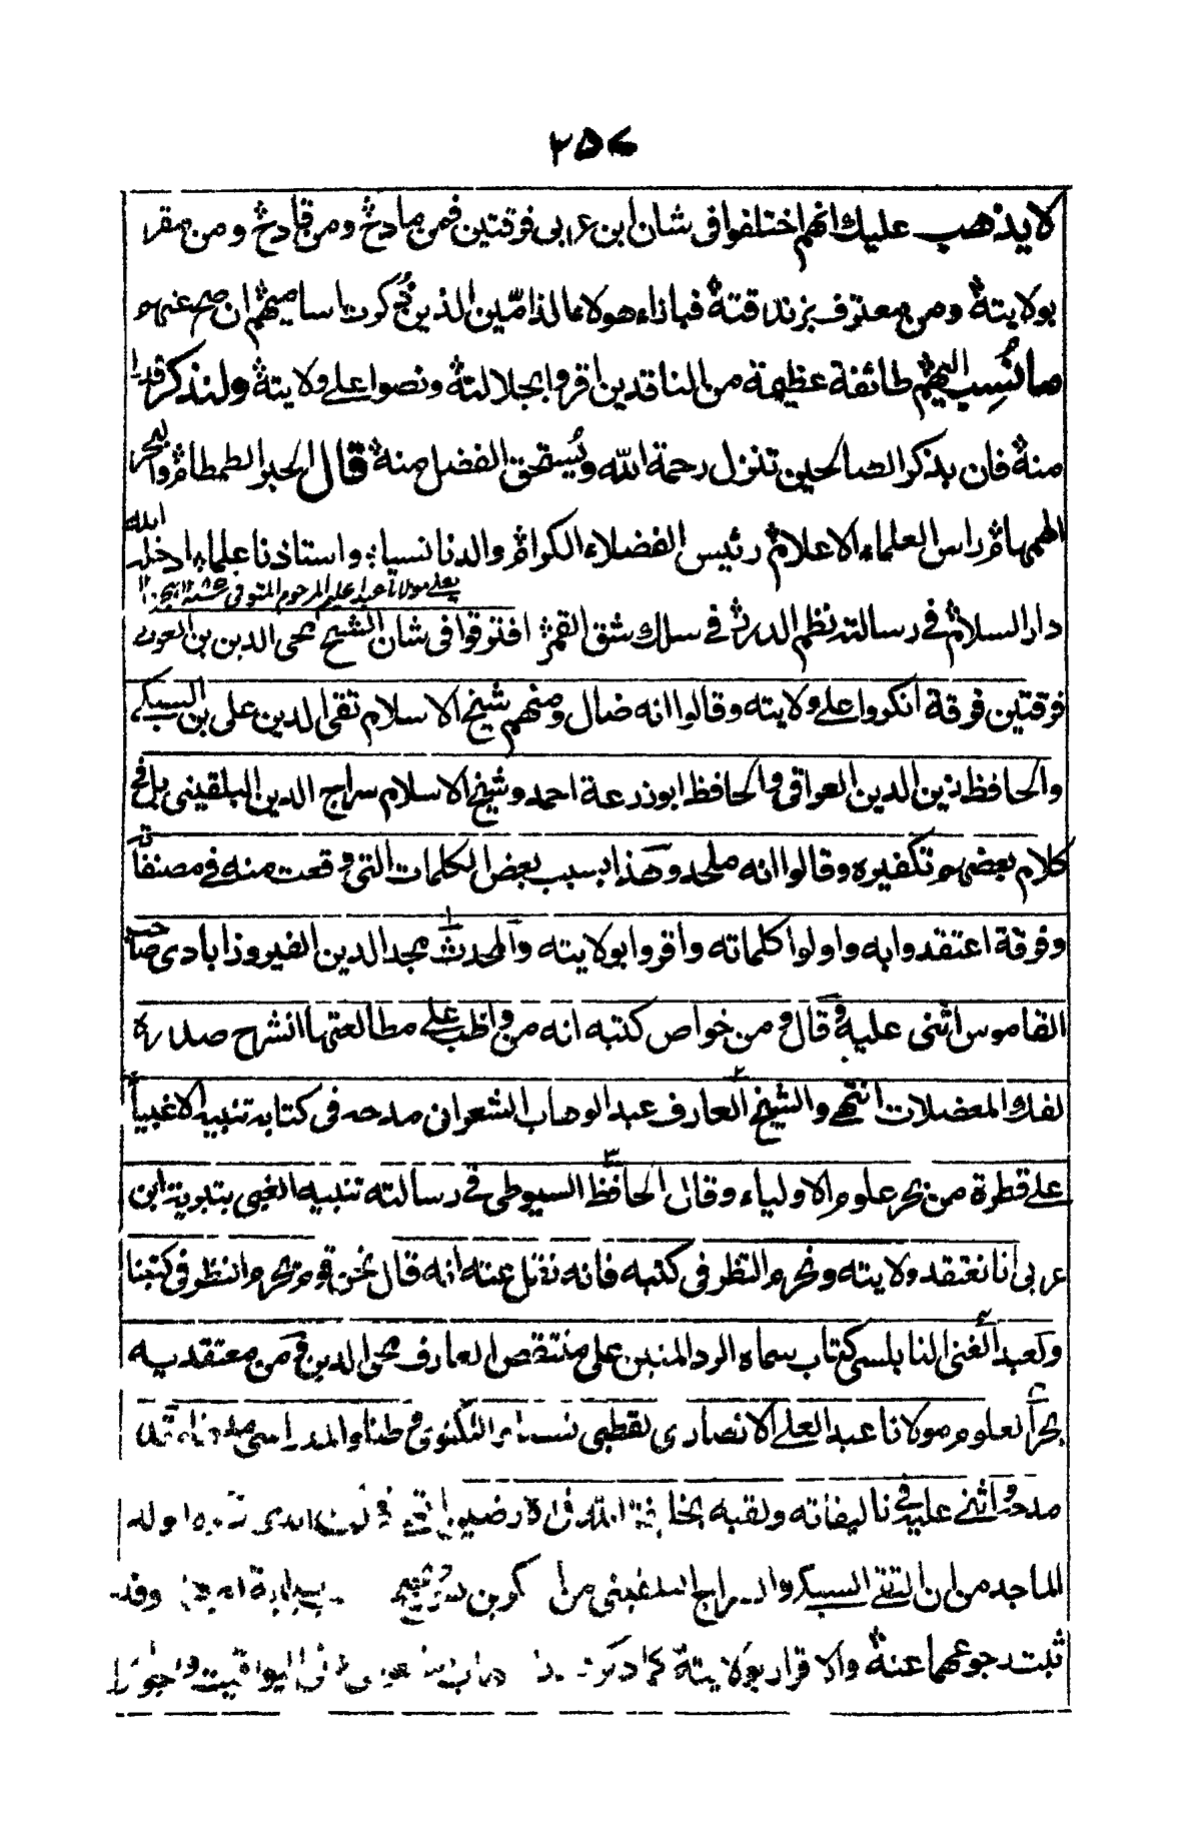 ٢٥٧
لا يذهب عليك انهم اختلفوا فى شان ابن عربى فرقتين فمن مادح ومن قادح ومن مقر
بولايته ومن معترف بزندقته فبازاء هولاء الذامين الذين ذكرت اساميهم ان صح عنهم
ما نُسِب اليهم طائفة عظيمة من الناقدين اقروا بجلالته ونصوا على ولايته ولنذكر قدرا
منه فان بذكر الصالحين تنزل رحمة الله ويُستحق الفضل منه قال الحبر الطمطام والبحر
الهمهام راس العلماء الاعلام رئيس الفضلاء الكرام والدنا نسبا واستاذنا علما ادخله الله
يعنے مولانا عبد الحليم المرحوم المتوفى
دار السلام فے رسالته نظم الدرر فے سلك شق القمر افترقوا فى شان الشيخ محى الدين بن العربے
فرقتين فرقة انكروا علے ولايته وقالوا انه ضال ومنهم شيخ الاسلام تقى الدين على بن السبكے
والحافظ زين الدين العراقى والحافظ ابو زرعة احمد وشيخ الاسلام سراج الدين البلقينى بل فى
كلام بعضهم تكفيره وقالوا انه ملحد وهذا بسبب بعض الكلمات التى وقعت منه فے مصنفاته
وفرقة اعتقدوا به واولوا كلماته واقروا بولايته والمحدث مجد الدين الفيروزابادى صاحب
القاموس اثنى عليه وقال ومن خواص كتبه انه من واظب علے مطالعتها انشرح صدره
لفك المعضلات انتهے والشيخ العارف عبد الوهاب الشعرانى مدحه فى كتابه تنبيه الاغبياء
علے قطرة من بحر علوم الاولياء وقال الحافظ السيوطى فے رسالته تنبيه الغبى بتبرية ابن
عربى انا نعتقد ولايته ونحرم النظر فى كتبه فانه نقل عنه انه قال نحن قوم يحرم النظر فى كتبنا
ولعبد الغنى النابلسى كتاب سماه الرد المتين على منتقص العارف محى الدين ومن معتقديه
بحر العلوم مولانا عبد العلے الانصارى القطبى نسبا اللكنوى وطنا والمدراسى
مدحه واثنے عليه فے تاليفاته ولقبه انتهے
الماجد من ان التقے السبكے والسراج البلقينى من
ثبت رجوعهما عنه والاقرار بولايته كما ذكره فى اليواقيت والجواهر